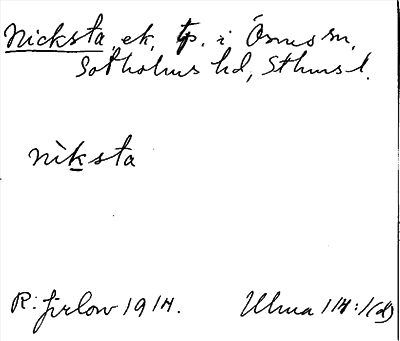 Nicksta, ek, tp. i Ösmo sn,
Sotholms hd, Sthms l.
nìksta
R: Jirlow 1914.
Ulma 114:1(d)